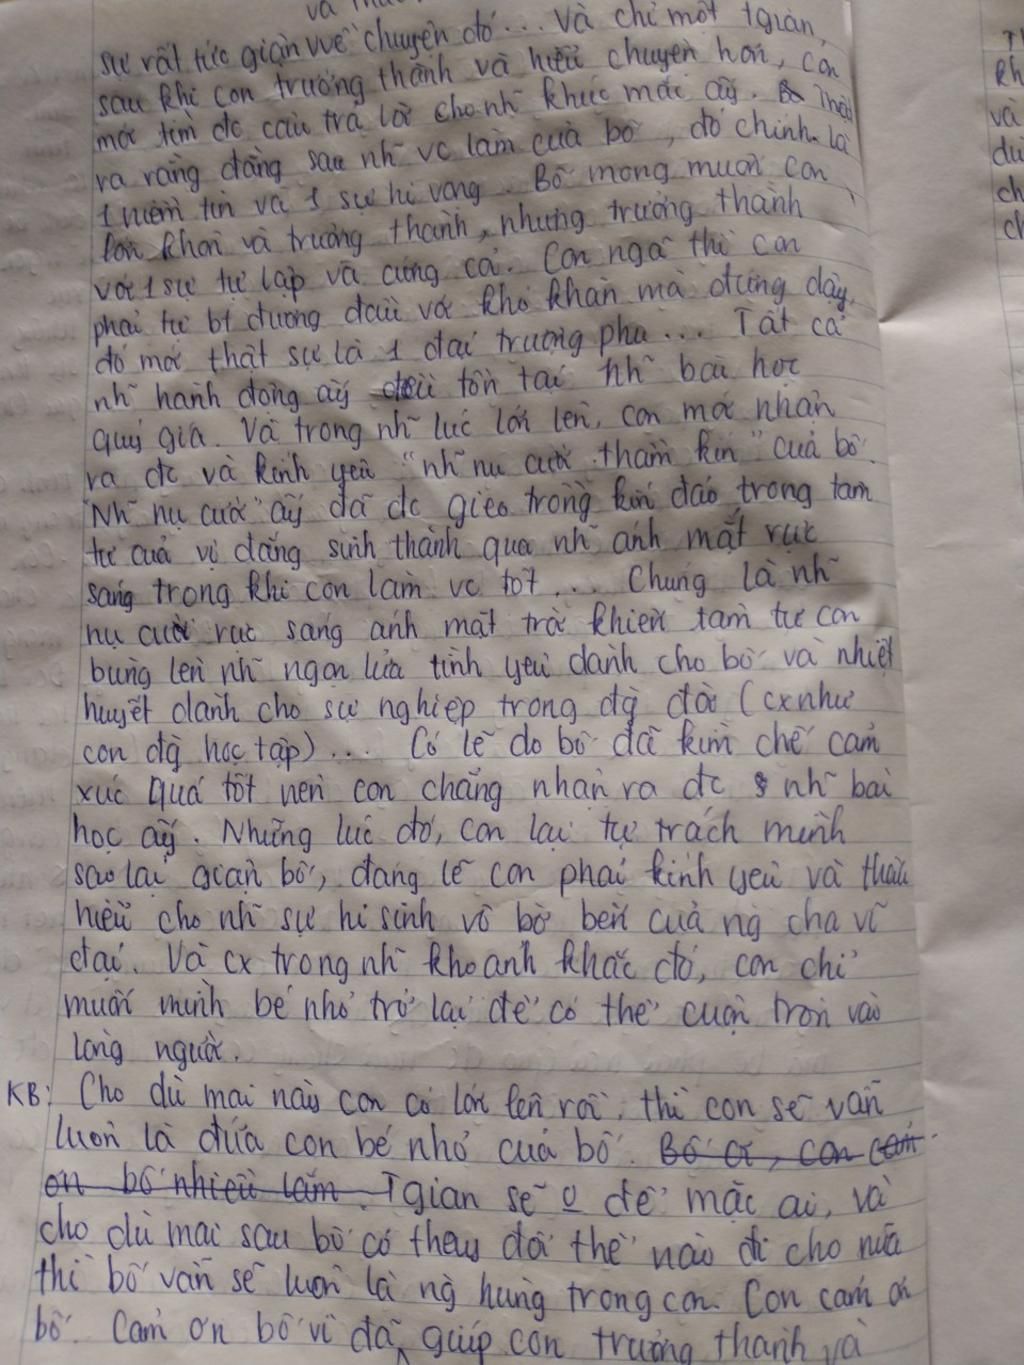 và
sự rất tức giận về chuyện đó... và chỉ một tgian,
sau khi con trưởng thành và hiểu chuyện hơn, con
mới tìm đc câu trả lời cho nh~ khúc mắc ấy. Thật
ra rằng đằng sau nh~ vc làm của bố, đó chính là
1 niềm tin và 1 sự hi vọng. Bố mong muốn con
lớn khôn và trưởng thành, nhưng trưởng thành
với 1 sự tự lập và cứng cỏi. Con ngã thì con
phải tự bt đương đầu với khó khăn mà đứng dậy,
đó mới thật sự là 1 đại trượng phu... Tất cả
nh~ hành động ấy đều tồn tại nh~ bài học
quý giá. Và trong nh~ lúc lớn lên, con mới nhận
ra đc và kính yêu "nh~ nụ cười thầm kín" của bố.
"Nh~ nụ cười" ấy đã đc gieo trồng kín đáo trong tâm
tư của vị đấng sinh thành qua nh~ ánh mắt rực
sáng trong khi con làm vc tốt... Chúng là nh~
nụ cười rực sáng ánh mặt trời khiến tâm tư con
bừng lên nh~ ngọn lửa tình yêu dành cho bố và nhiệt
huyết dành cho sự nghiệp trong đg đời (cx như
con đg học tập).... Có lẽ do bố đã kìm chế cảm
xúc quá tốt nên con chẳng nhận ra đc nh~ bài
học ấy. Những lúc đó, con lại tự trách mình
sao lại giận bố, đáng lẽ con phải kính yêu và thấu
hiểu cho nh~ sự hi sinh vô bờ bến của ng cha vĩ
đại. Và cx trong nh~ khoảnh khắc đó, con chỉ
muốn mình bé nhỏ trở lại để có thể cuộn tròn vào
lòng người.
KB: Cho dù mai này con có lớn lên rồi, thì con sẽ vẫn
luôn là đứa con bé nhỏ của bố. Bố ơi, con cảm
ơn bố nhiều lắm. Tgian sẽ o để mặc ai, và
cho dù mai sau bố có thay đổi thế nào đi chăng nữa
thì bố vẫn sẽ luôn là ng hùng trong con. Con cảm ơn
bố. Cảm ơn bố vì đã giúp con trưởng thành và